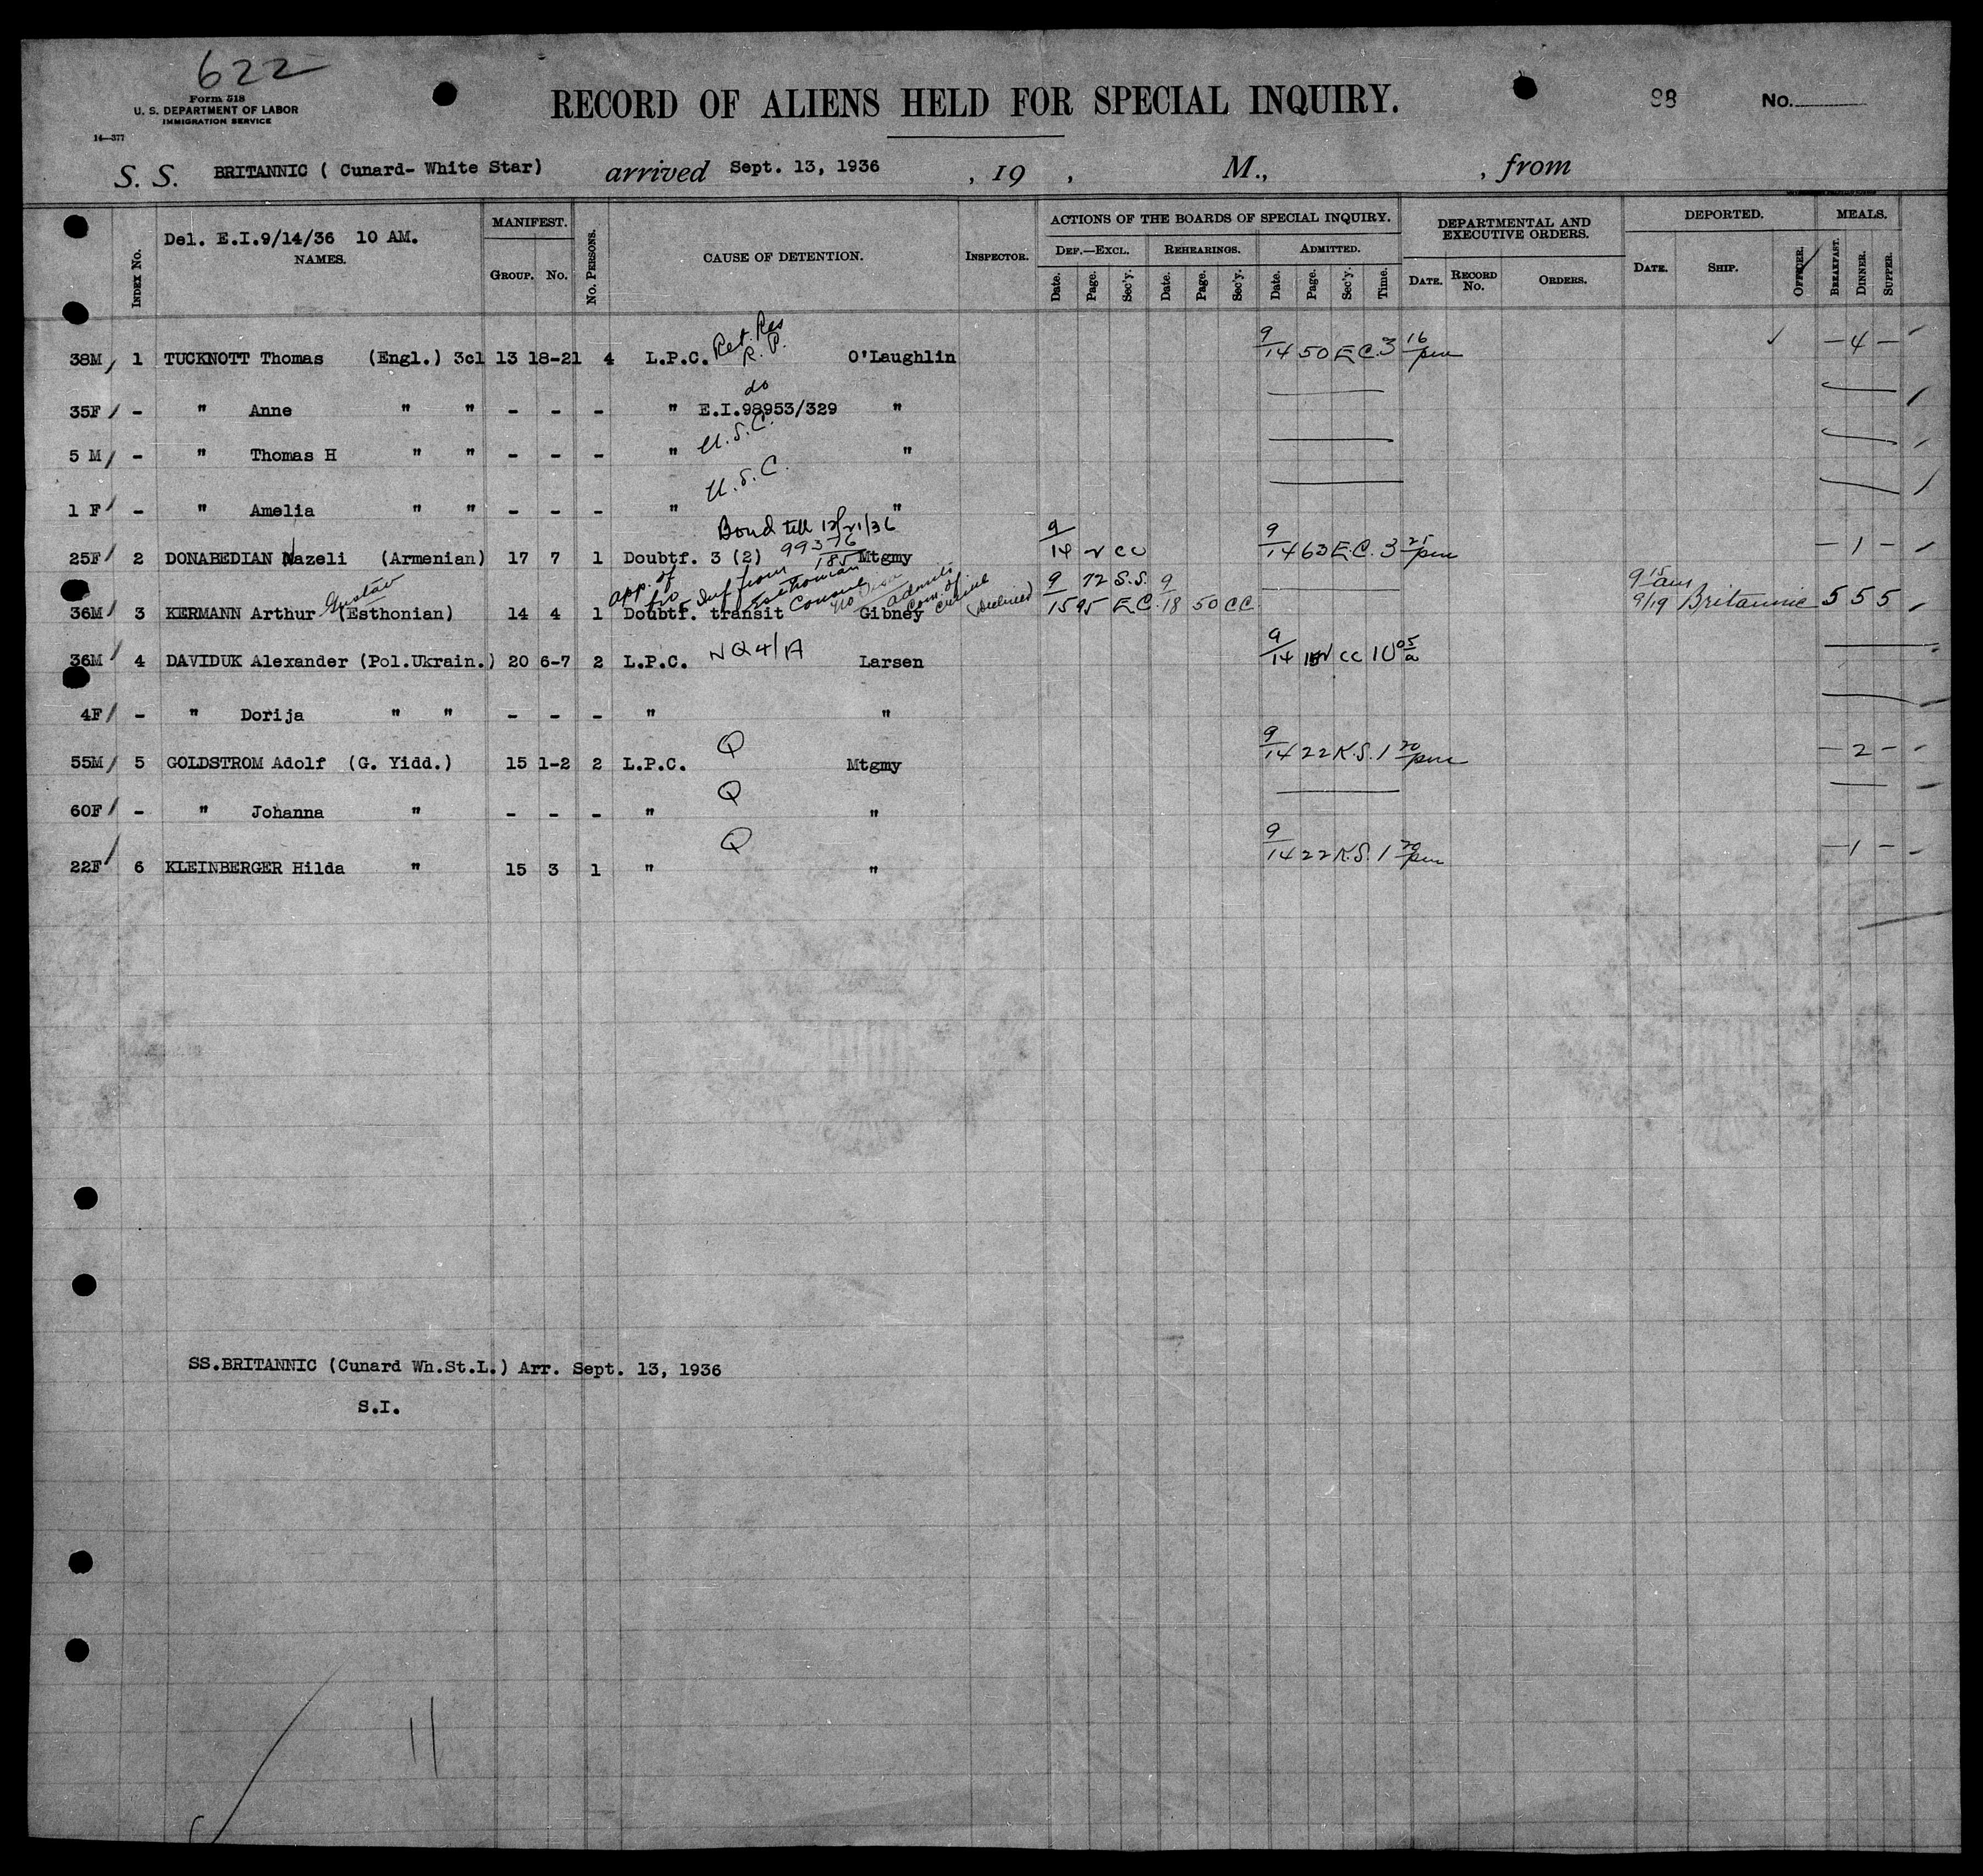 622
Form 518
U. S. DEPARTMENT OF LABOR
IMMIGRATION SERVICE
14—377
RECORD OF ALIENS HELD FOR SPECIAL INQUIRY.
98 No.
S. S. BRITANNIC ( Cunard- White Star) arrived Sept. 13, 1936 , 19 , M., , from
Index No.
Del. E.I.9/14/36 10 AM.
NAMES.
MANIFEST.
Group. No.
No. Persons.
CAUSE OF DETENTION.
Inspector.
ACTIONS OF THE BOARDS OF SPECIAL INQUIRY.
Def.—Excl. Rehearings. Admitted.
Date. Page. Sec'y. Date. Page. Sec'y. Date. Page. Sec'y. Time.
DEPARTMENTAL AND EXECUTIVE ORDERS.
Date. Record No. Orders.
DEPORTED.
Date. Ship. Officer.
MEALS.
Breakfast. Dinner. Supper.
Ret. Res
R. P.
38M 1 TUCKNOTT Thomas (Engl.) 3cl 13 18-21 4 L.P.C. O'Laughlin 9/14 50 E.C. 3 16/pm – 4 –
do
35F - " Anne " " - - - " E.I.98953/329 "
U.S.C.
5 M - " Thomas H " " - - - " "
U.S.C.
1 F - " Amelia " " - - - " "
Bond till 12/21/36
99376/185
25F 2 DONABEDIAN Nazeli (Armenian) 17 7 1 Doubtf. 3 (2) Mtgmy 9/14 v CC 9/14 63 E.C. 3 25/pm – 1 –
app. of two Inf from Esthonian Consul no visa admits com. of crime (declined)
Gustav
36M 3 KERMANN Arthur (Esthonian) 14 4 1 Doubtf. transit Gibney 9/15 72 S.S. 95 E.C. 9/18 50 CC 9 15 am 9/19 Britannic 5 5 5
36M 4 DAVIDUK Alexander (Pol.Ukrain.) 20 6-7 2 L.P.C. Larsen 9/14 CC 10 05/a
4F - " Dorija " " - - - " "
Q
55M 5 GOLDSTROM Adolf (G. Yidd.) 15 1-2 2 L.P.C. Mtgmy 9/14 22 K.S. 1 20/pm – 2 –
Q
60F - " Johanna " - - - " "
Q
22F 6 KLEINBERGER Hilda " 15 3 1 " " 9/14 22 K.S. 1 20/pm – 1 –
SS.BRITANNIC (Cunard Wh.St.L.) Arr. Sept. 13, 1936
S.I.
11